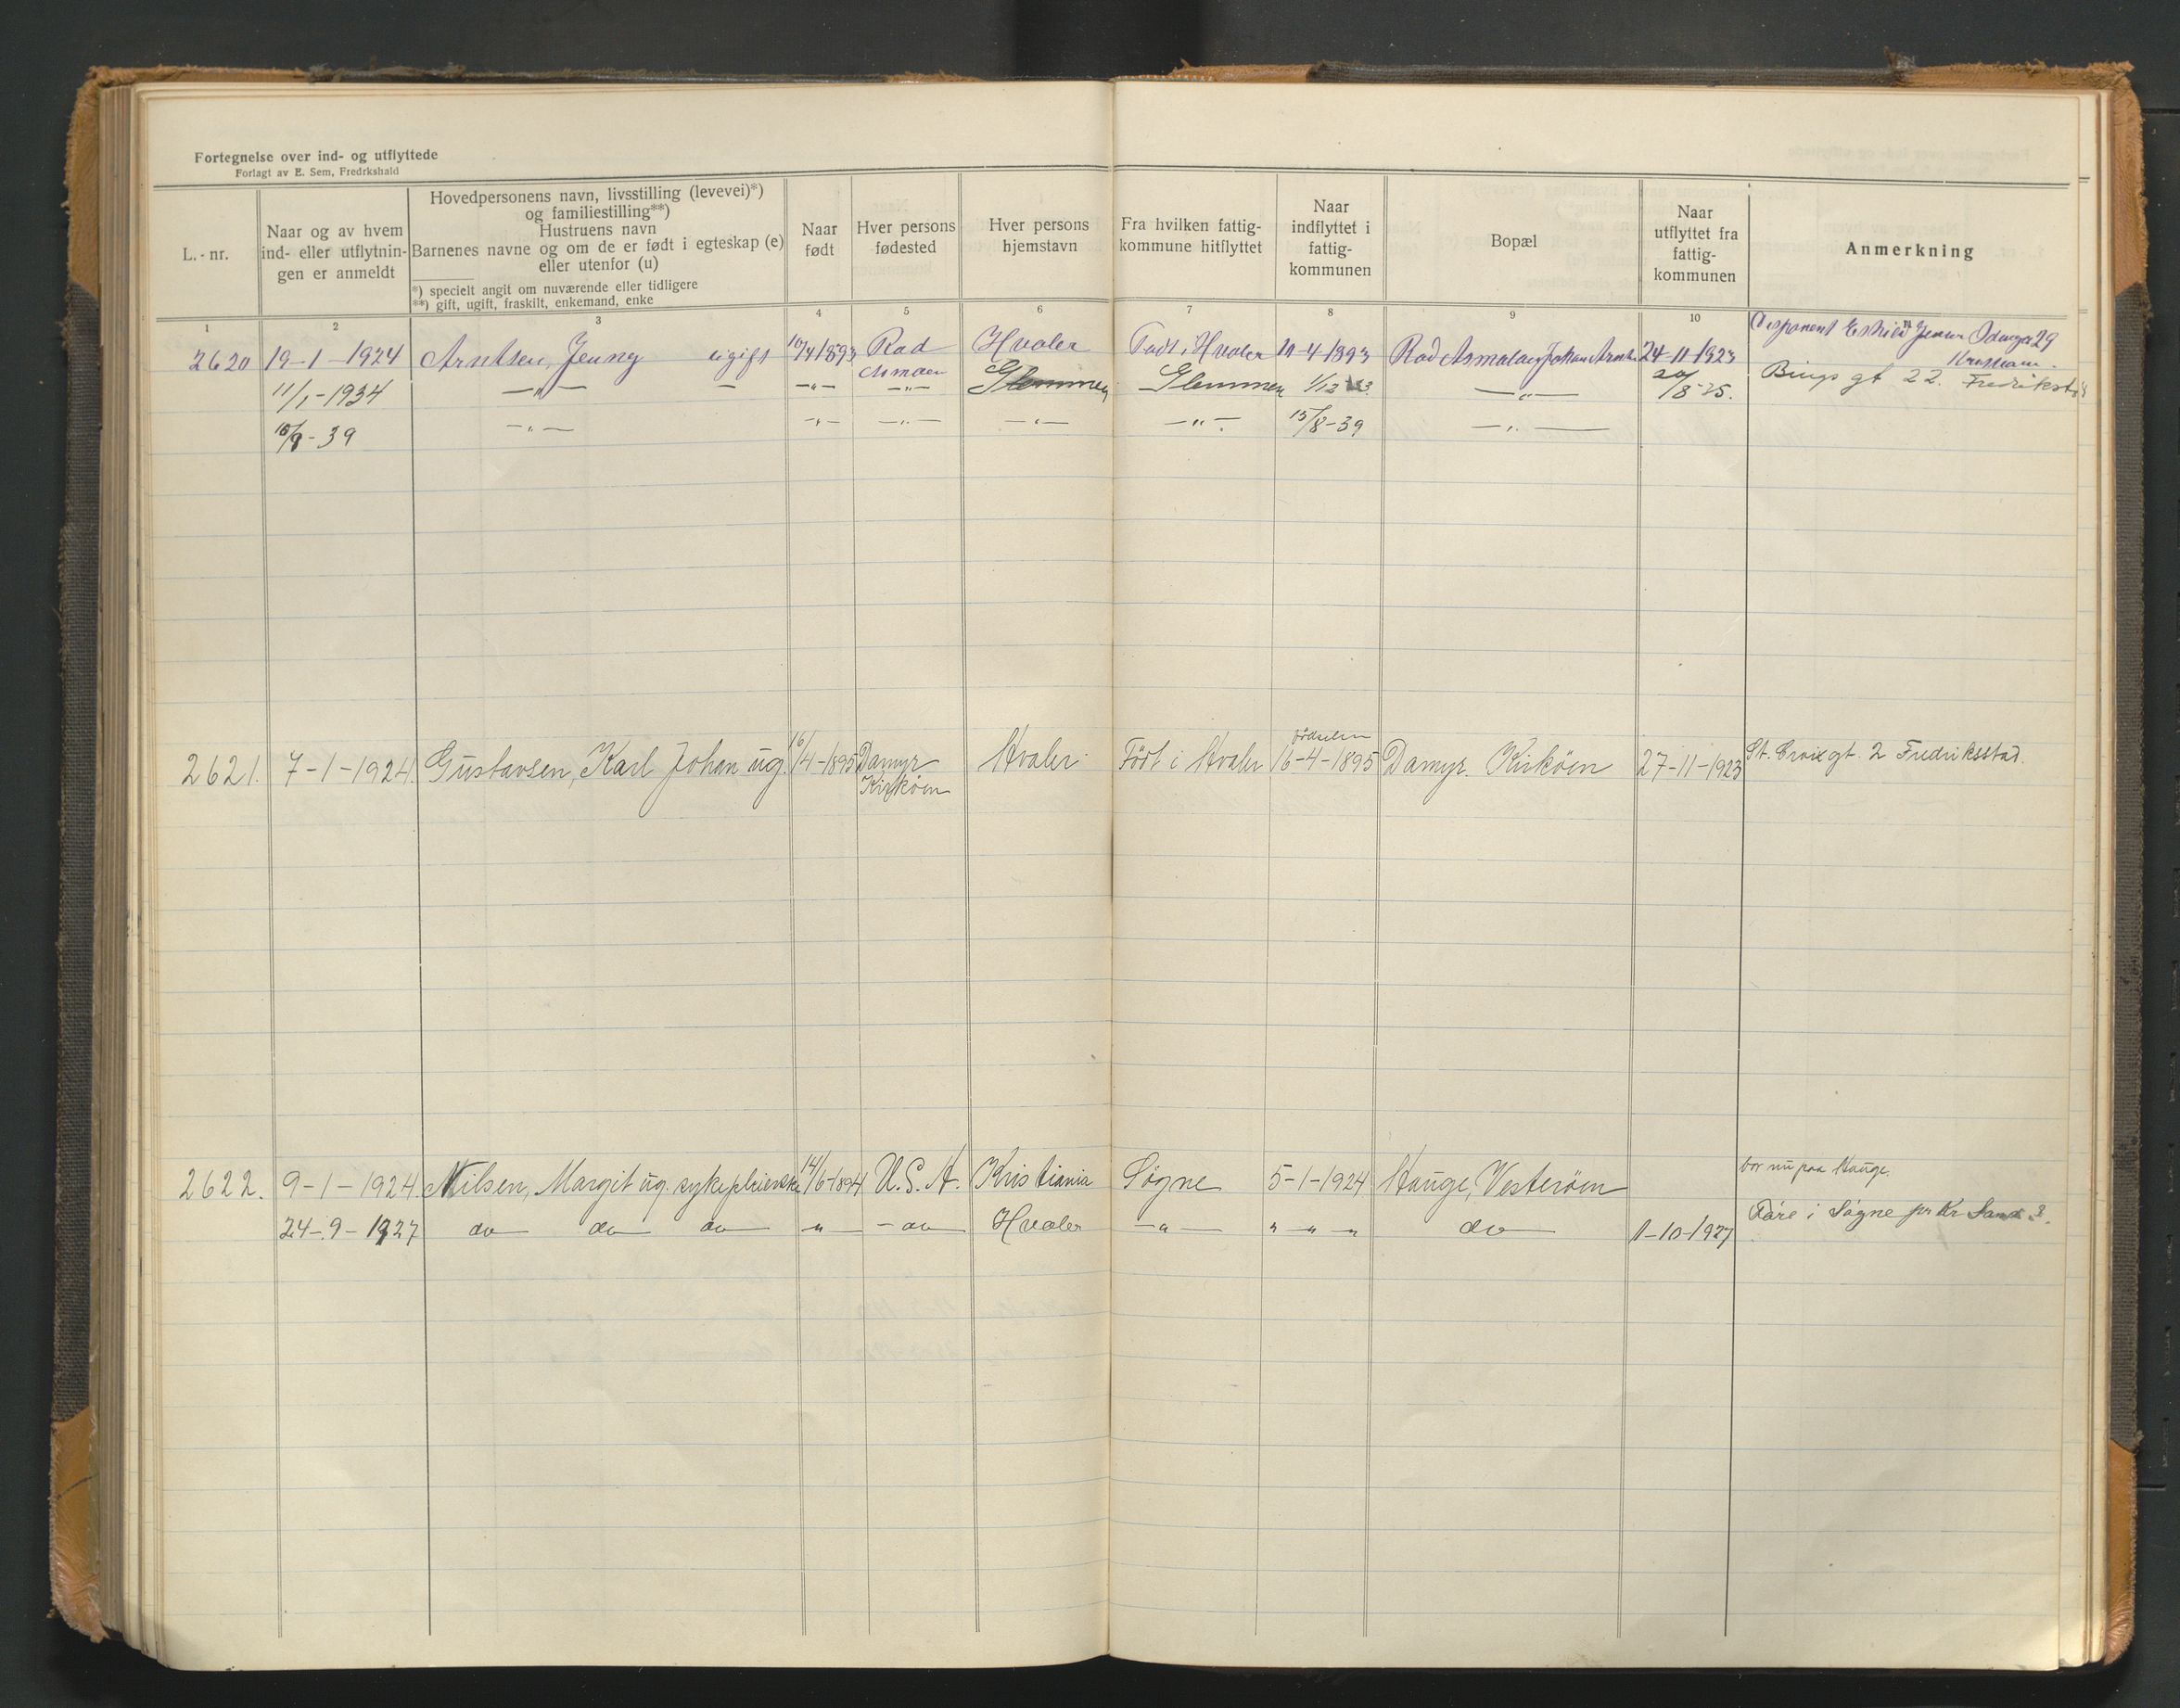 Fortegnelse over ind- og utflyttede
Forlagt av E. Sem, Fredrkshald
L.-nr.
Naar og av hvem
ind- eller utflytnin-
gen er anmeldt
Hovedpersonens navn, livsstilling (levevei)*)
og familiestilling**)
Hustruens navn
Barnenes navne og om de er født i egteskap (e)
eller utenfor (u)
*) specielt angit om nuværende eller tidligere
**) gift, ugift, fraskilt, enkemand, enke
Naar
født
Hver persons
fødested
Hver persons
hjemstavn
Fra hvilken fattig-
kommune hitflyttet
Naar
indflyttet i
fattig-
kommunen
Bopæl
Naar
utflyttet fra
fattig-
kommunen
Anmerkning
1 2 3 4 5 6 7 8 9 10
2620 19-1-1924 Arntsen, Jenny ugift 10/4 1893 Rød Hvaler Født i Hvaler 10-4-1893 Rød Asmaløy Johan 24-11-1923 Disponent Jensen 29
11/1-1934 —"— — —"— —"— Glemmen Glemmen 1/12 —"— 20/8-35. Bings gt 22. Fredrikstad
—"— —"— —"— —"— —"— 15/8-39 —"—
fødselen
2621. 7-1-1924. Gustavsen, Karl Johan ug. 16/4-1895 Damyr Hvaler Født i Hvaler 16-4-1895 Damyr. Kirköen 27-11-1923 St. Croix gt. 2 Fredriksstad.
Kirköen
bor nu paa Hauge.
2622. 9-1-1924. Nilsen, Margit ug. sykepleierske 14/6-1894 U.S.A. Kristiania Søgne 5-1-1924 Hauge, Vesterøen
24-9-1927 do do do " — do Hvaler —"— " " " do 1-10-1927 i Søgne pr Kr Sand S.